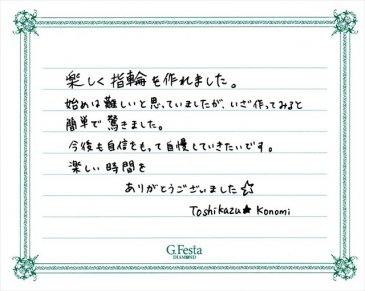 楽しく指輪を作れました。
始めは難しいと思っていましたが、いざ作ってみると
簡単で驚きました。
今後も自信をもって自慢していきたいです。
楽しい時間を
ありがとうございました☆
Toshikazu★Konomi
G.Festa
DIAMOND